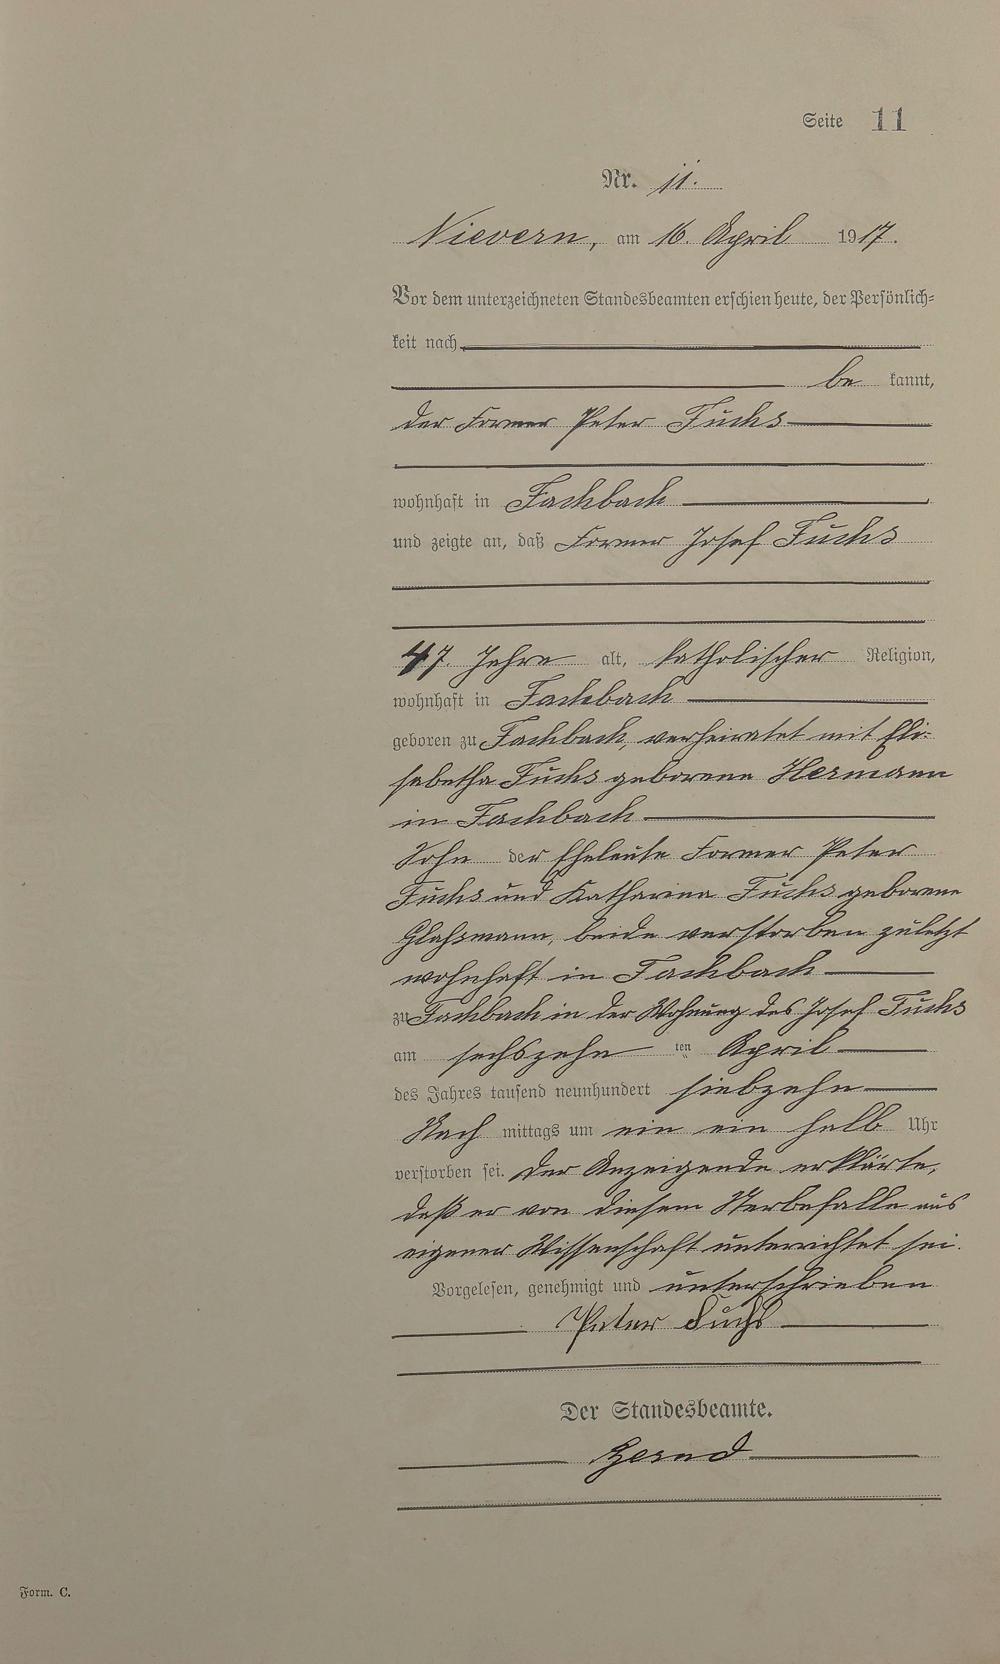 Seite 11
Nr. 11.
Nievern, am 16. April 1917.
Vor dem unterzeichneten Standesbeamten erschien heute, der Persönlich-
keit nach
be kannt,
der Former Peter Fuchs
wohnhaft in Fachbach
und zeigte an, daß Former Josef Fuchs
47. Jahre alt, katholischer Religion,
wohnhaft in Fachbach
geboren zu Fachbach, verheiratet mit Eli-
sabetha Fuchs geborene Hermann
in Fachbach
Sohn der Eheleute Former Peter
Fuchs und Katharina Fuchs geborene
Glaßmann, beide verstorben zuletzt
wohnhaft in Fachbach
zu Fachbach in der Wohnung des Josef Fuchs
am sechszehn ten April
des Jahres tausend neunhundert siebzehn
Nach mittags um ein ein halb Uhr
verstorben sei. Der Anzeigende erklärte,
daß er von diesem Sterbefalle aus
eigener Wissenschaft unterrichtet sei.
Vorgelesen, genehmigt und unterschrieben
Peter Fuchs
Der Standesbeamte.
Form. C.